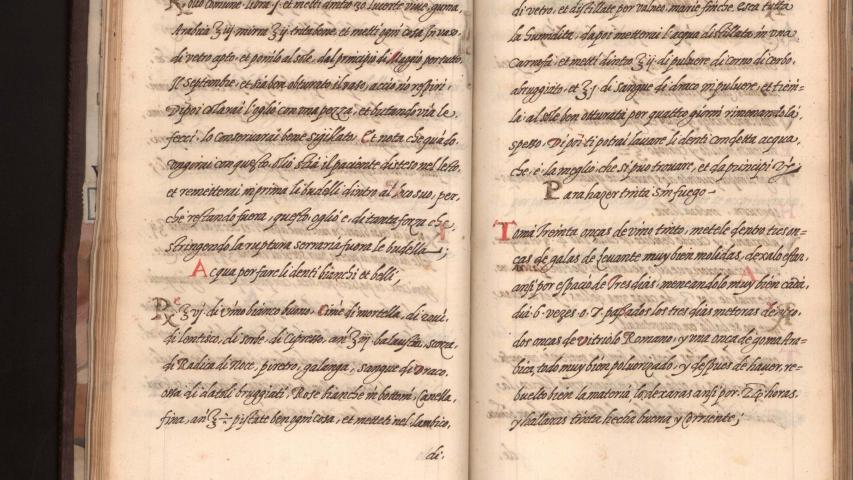 olio comune libra j. et metti dentro 20 lucerte uiue, guma,
Arabica ʒ iij mirra ʒ ij trita bene. et metti ogni cosa in uaso
di uetro apto. et ponilo al sole, dal principio di Maggio per tutto
Il Septembre, et sia ben obturato il uaso, acciò nõ respiri,
Dipoi colarai l'oglio con una pezza, et butando uia le
fecci, lo conseruarai bene sigillato. Et nota che quãdo
ongerai con questo olio stia il paciente disteso nel letto
et remetterai in prima li budelli dintro al loco suo, per,
che restando fuora, questo oglio è di tanta forza che,
stringendo la ruptura serraria fuora le budella;
Acqua per fare li denti bianchi et belli;
Rx ʒ vj. di uino bianco buono. Cime di mortella, di
di lentisco, di sorbe, di Cipresso, añ ʒ iij balausti, scorza
di Radica di Noce, piretro, galanga, sangue di Draco.
ossa di datoli bruggiati, Rose bianche in bottoni, Canella
fina, añ ʒ pistate ben ogni cosa, et metteti nel lambico,
di.
di uetro, et distillate per balneo marie finche esca tutta
la humidità, da poi mettarai l'acqua distillata in una
Carrafa. et metti dintro ʒ ij di puluere di Corno di Cerbo,
abruggiato, et ʒ j. di sangue di draco in puluere, et tien=
la al sole ben otturata per quattro giorni rimenandola
spesso. Dipoi ti potrai lauare li denti con detta acqua,
che, è la meglio, che si può trouare, et da principi
Para hazer tinta sin fuego
Toma Treinta onças de vino tinto, metele dentro tres on=
ças de galas de Leuante muy bien molidas, dexalo estar
ansi por espacio de Tres dias, meneandolo muy bien cada
dia 6. vezes o. 7. passados los tres dias meteras dentro
dos onças de vitriolo Romano, y una onça de goma Ara=
bica, todo muy bien poluorizado, y despues de hauer re=
buelto bien la materia, lo dexaras ansi por. 24. horas,
y hallaras tinta hecha buena y Corriente;